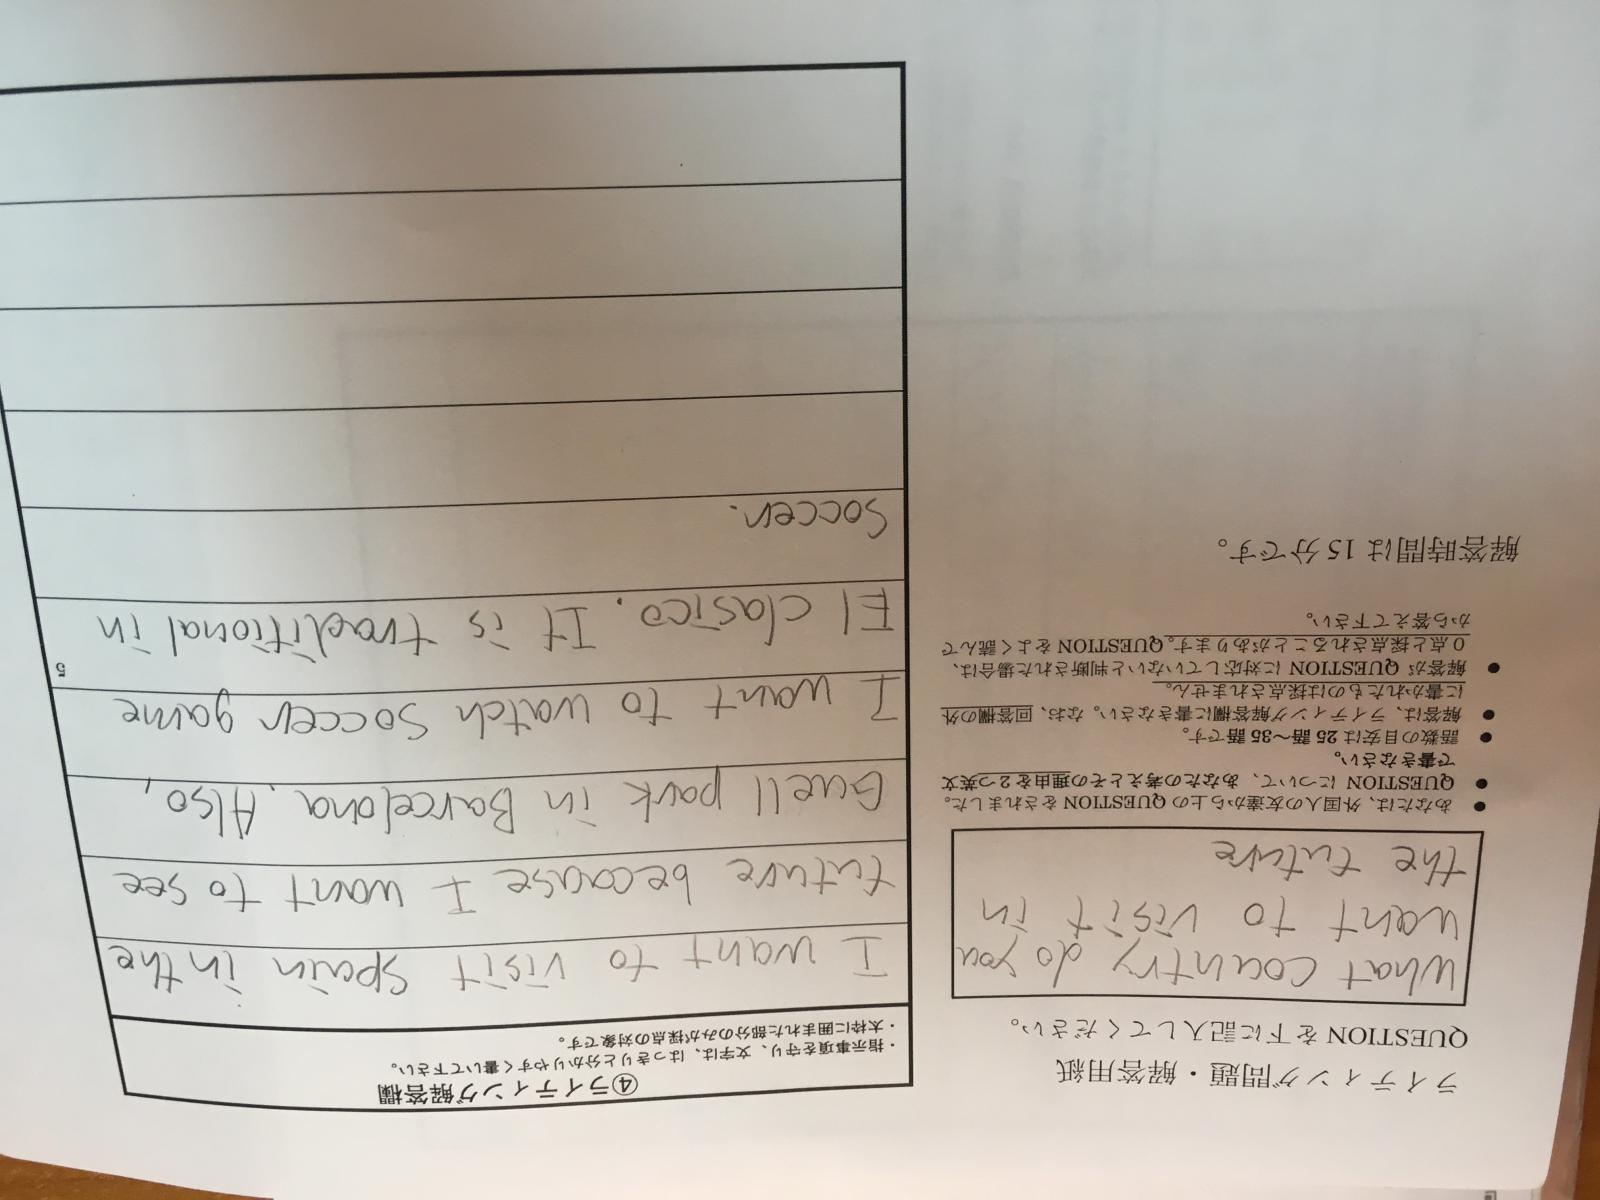 ライティング問題・解答用紙
QUESTION を下に記入してください。
What country do you
want to visit in
the future
● あなたは、外国人の友達から上の QUESTION をされました。
● QUESTION について、あなたの考えとその理由を2つ英文
で書きなさい。
● 語数の目安は 25 語~35 語です。
● 解答は、ライティング解答欄に書きなさい。なお、回答欄の外
に書かれたものは採点されません。
● 解答が QUESTION に対応していないと判断された場合は、
0点と採点されることがあります。QUESTION をよく読んで
から答えて下さい。
解答時間は 15 分です。
④ライティング解答欄
・指示事項を守り、文字は、はっきりと分かりやすく書いて下さい。
・太枠に囲まれた部分のみが採点の対象です。
I want to visit spain in the
future because I want to see
Guell park in Barcelona. Also,
I want to watch soccer game
5
El clasico. It is traditional in
soccer.